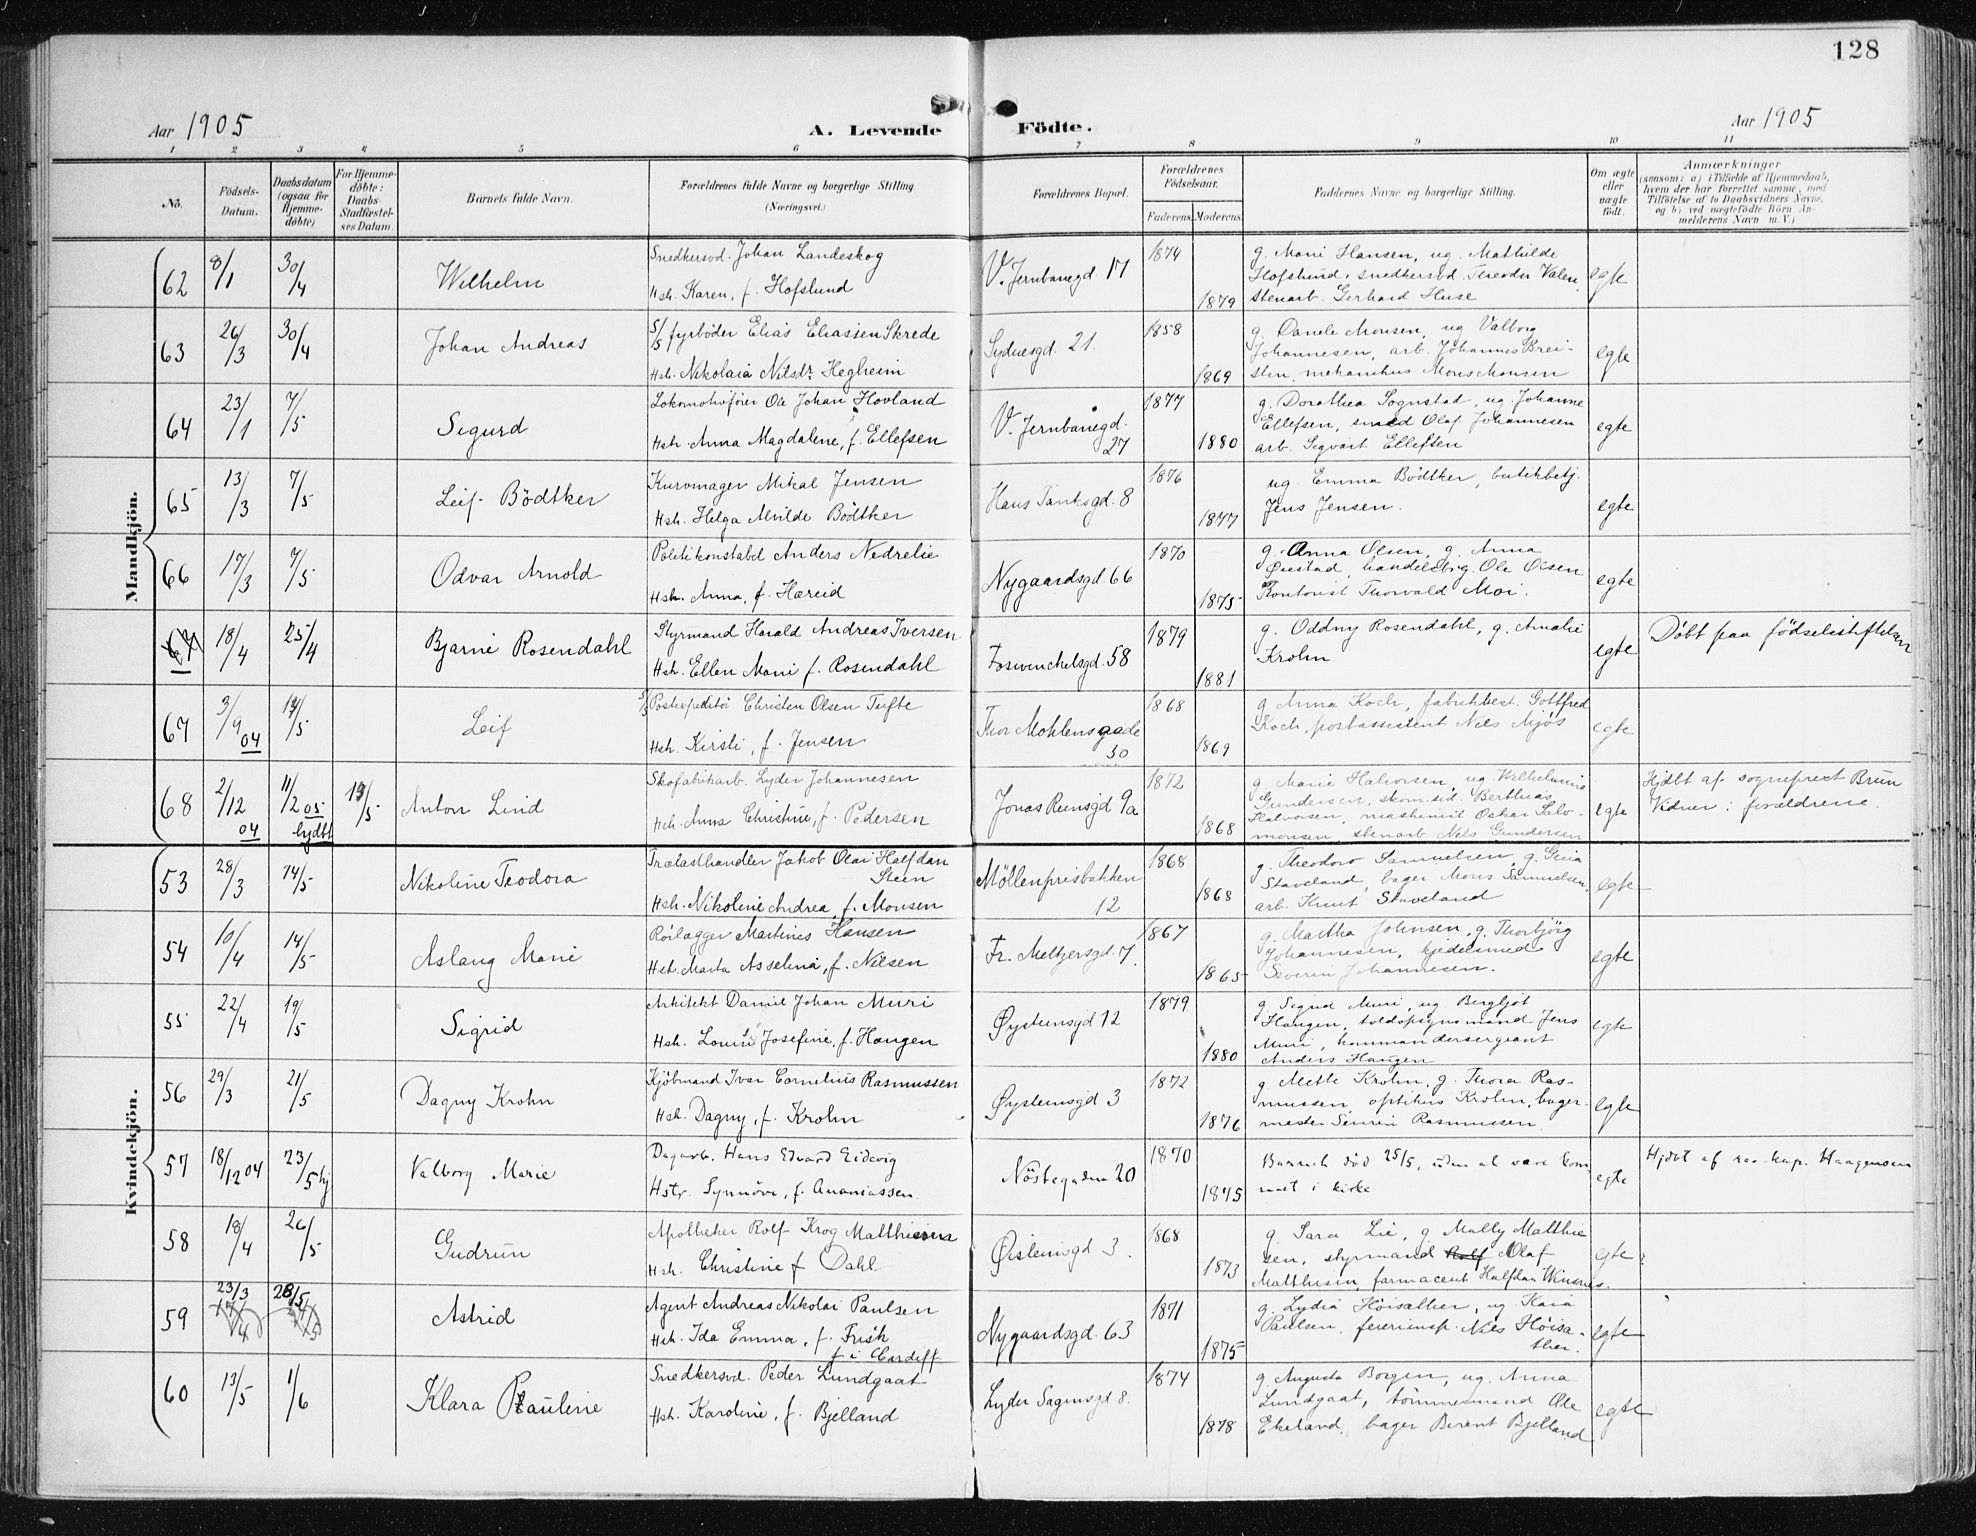 128
Aar 1905
A. Levende Födte.
Aar 1905
1 2 3 4 5 6 7 8 9 10 11
No.
Födsels-Datum.
Daabsdatum (ogsaa for Hjemme-döbte)
For Hjemme-döbte: Daabs-Stadfæstel-ses Datum.
Barnets fulde Navn.
Forældrenes fulde Navne og borgerlige Stilling
(Næringsvei.)
Forældrenes Bopæl.
Forældrenes Födselsaar.
Faderens. Moderens.
Faddernes Navne og borgerlige Stilling.
Om ægte eller uægte födt.
Anmærkninger
(saasom: a) i Tilfælde af Hjemmedaab, hvem der har forrettet samme, med Tilföielse af to Daabsvidners Navne. og b) ved uægtefödte Börn An-melderens Navn m. V.)
Mandkjön.
62 8/1 30/4 Wilhelm
Snedkersvd. Johan Landeskog
Hst. Karen, f. Hofslund
V. Jernbanegd 17 1874 1879
g. Marie Hansen, ug. Mathilde
Hofslund, snedkersvd. Theodor Valen,
stenarb. Gerhard Huse
egte
63 26/3 30/4 Johan Andreas
5/5 fyrböder Elias Eliassen Skrede
Hst. Nikolaia Nilsdr. Hegheim
Sydnesgd. 21. 1858 1869
g. Danele Monsen, ug Valborg
Johannesen, arb. Johannes Brei-
sten, mekanikus Mons Monsen
egte
64 23/1 7/5 Sigurd
Lokomotivförer Ole Johan Hovland
Hst. Anna Magdalene, f. Ellefsen
V. Jernbanegd. 27 1877 1880
g. Dorathea Sognstad, ug. Johanne
Ellefsen, smed Olaf Johannesen
arb. Sigvart Ellefsen
egte
65 13/3 7/5 Leif Bödtker
Kurvmager Mikal Jensen
Hst. Helga Alvilde Bödtker
Hans Tanksgd. 8 1876 1877
ug. Emma Bödtker, butikbetj.
Jens Jensen.
egte
66 17/3 7/5 Odvar Arnold
Politikonstabel Anders Nedrelie
Hst. Anna, f. Hæreid
Nygaardsgd. 66 1870 1875
g. Anna Olsen, g. Anna
Öiestad, handelsbg. Ole Olsen
Kontorist Thorvald Moi.
egte
67 18/4 25/4 Bjarne Rosendahl
Styrmand Harald Andreas Iversen
Hst. Ellen Marie f. Rosendahl
Foswinckelsgd. 58 1879 1881
g. Oddny Rosendahl, g. Amalie
Krohn
egte
Döbt paa födselsstiftelsen
67 3/9 04 14/5 Leif
Postexpeditör Christen Olsen Tufte
Hst. Kirsti, f. Jensen
Thor Mohlensgade 50 1868 1869
g Anna Koch, fabrikbest. Gottfred
Koch, postassistent Nils Mjös
egte
68 2/12 04 11/2 05 hjdbt 14/5 Anton Lind
Skofabrikarb. Lyder Johannesen
Hst. Anna Christine, f. Pedersen
Jonas Reinsgd 9a 1872 1868
g. Marie Halvorsen, ug. Wilhelmine
Gundersen, skom.sd. Berthias
Halvorsen, maskinist Oskar Salo-
monsen stenarb Nils Gundersen
egte
Hjdbt af sogneprest Brun
Vidner: forældrene.
Kvindekjön.
53 28/3 14/5 Nikoline Teodora
Trælasthandler Jakob Olai Halfdan
Steen
Hst. Nikoline Andrea, f. Monsen
Möllenprisbakken 12 1868 1868
g. Theodora Samuelsen, g. Gina
Staveland, bager Mons Samuelsen,
arb. Knut Staveland
egte
54 10/4 14/5 Aslaug Marie
Rörlægger Martines Hansen
Hst. Marta Asseline, f. Nilsen
Fr. Meltzersgd. 7. 1867 1865
g. Martha Johnsen, g. Thorbjörg
Johannesen, kjedelsmed
Severin Johannesen.
egte
55 22/4 19/5 Sigrid
Arkitekt Daniel Johan Muri
Hst. Louise Josefine, f. Haugen
Øysteinsgd 12 1879 1880
g Sigrid Muri, ug. Bergljot
Haugen, toldopsynsmand Jens
Muri, kommandersergeant
Anders Haugen
egte
56 29/3 21/5 Dagny Krohn
Kjöbmand Ivar Cornelius Rasmussen
Hst. Dagny, f. Krohn
Øysteinsgd 3 1872 1876
g Mette Krohn, g. Thora Ras-
mussen, optikus Krohn, bager-
mester Severin Rasmussen.
egte
57 18/12 04 23/5 hj Valborg Marie
Dagarb. Hans Edvard Eidevig
Hstr. Synnöve, f. Ananiassen
Nöstegaden 20 1870 1875
Barnet död 25/5, uden at være kom-
met i kirke.
egte
Hjdbt af res. kap. Haagensen
58 18/4 26/5 Gudrun
Apotheker Rolf Krog Matthiesen
Hst. Christine f Dahl
Øisteinsgd. 3. 1868 1873
g. Sara Lie, g Mally Matthie
sen, styrmand Rolf Olaf
Matthiesen, farmaceut Halfdan Winsnes.
egte
59 23/3 28/5 Astrid
Agent Andreas Nikolai Paulsen
Hst. Ida Emma, f. Frisk
f i Cardiff
Nygaardsgd. 63 1871 1875
g. Lydia Höisæther, ug. Kaia
Paulsen, feierinsp. Nils Höisæ-
ther.
egte
60 13/5 1/6 Klara Pauline
Snedkersvd. Peder Lundgaat
Hst. Karoline, f. Bjelland
Lyder Sagensgd 8. 1874 1878
g. Augusta Borgen, ug. Anna
Lundgaat, tömmermand Ole
Ekeland, bager Berent Bjelland
egte